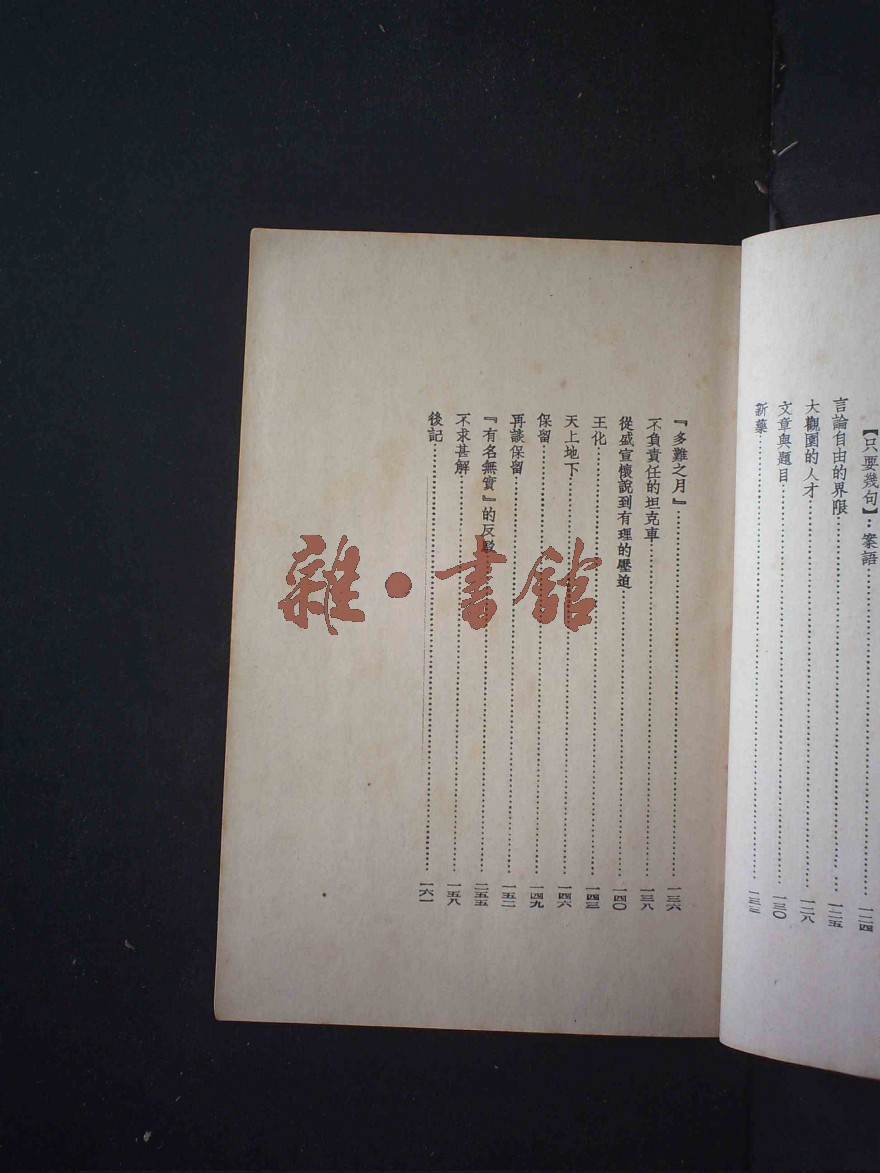 【只要幾句】：案語……一二四
言論自由的界限……一二五
大觀園的人才……一二八
文章與題目……一三〇
新藥……一三三
『多難之月』……一三六
不負責任的坦克車……一三八
從盛宣懷說到有理的壓迫……一四〇
王化……一四三
天上地下……一四六
保留……一四九
再談保留……一五二
『有名無實』的反駁……二五五
不求甚解……一五八
後記……一六一
雜·書館